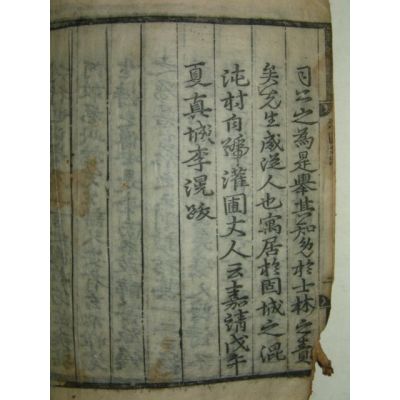 司公之為是舉其知免於士林之責
矣先生咸從人也寓居於固城之混
沌村自號灌圃丈人云嘉靖戊午
夏真城李滉跋